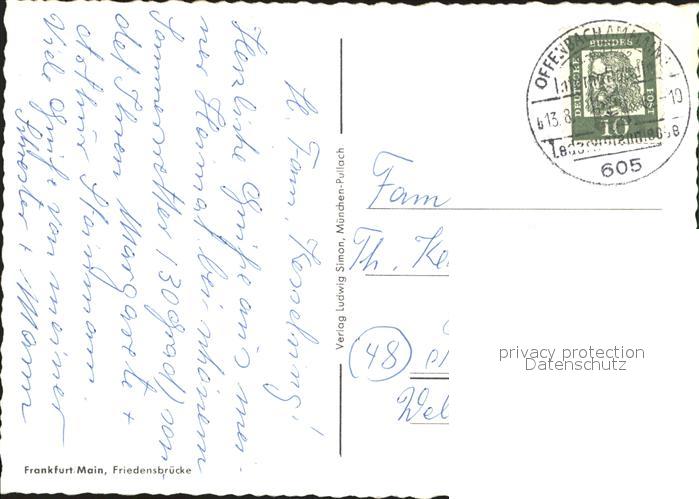 L. Fam. Kesselring!
Herzliche Grüße aus mei-
ner Heimat bei schönem
Sommerwetter (30 Grad) sen-
det Ihnen Margarete +
Arthur
Viele Grüße von meiner
Schwester + Mann
Verlag Ludwig Simon, München-Pullach
Frankfurt Main, Friedensbrücke
OFFENBACH AM MAIN
13.8.
-10
605
DEUTSCHE BUNDESPOST
10
Fam
Th. Ke
(48)
Wel
privacy protection
Datenschutz